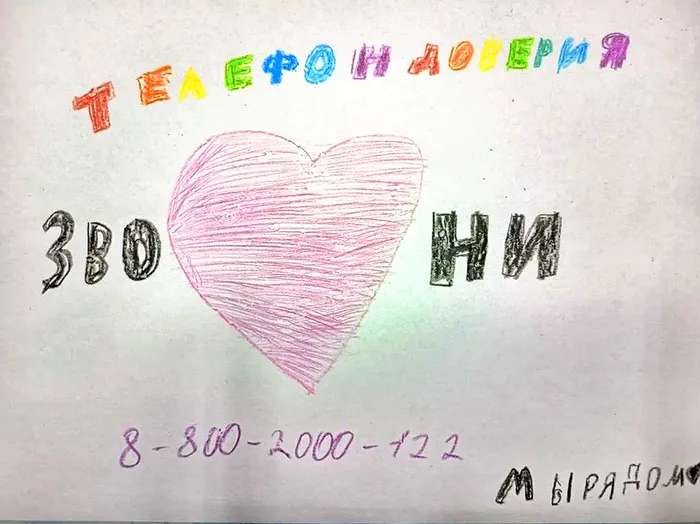 ТЕЛЕФОН ДОВЕРИЯ
ЗВО НИ
8-800-2000-122
МЫ РЯДОМ